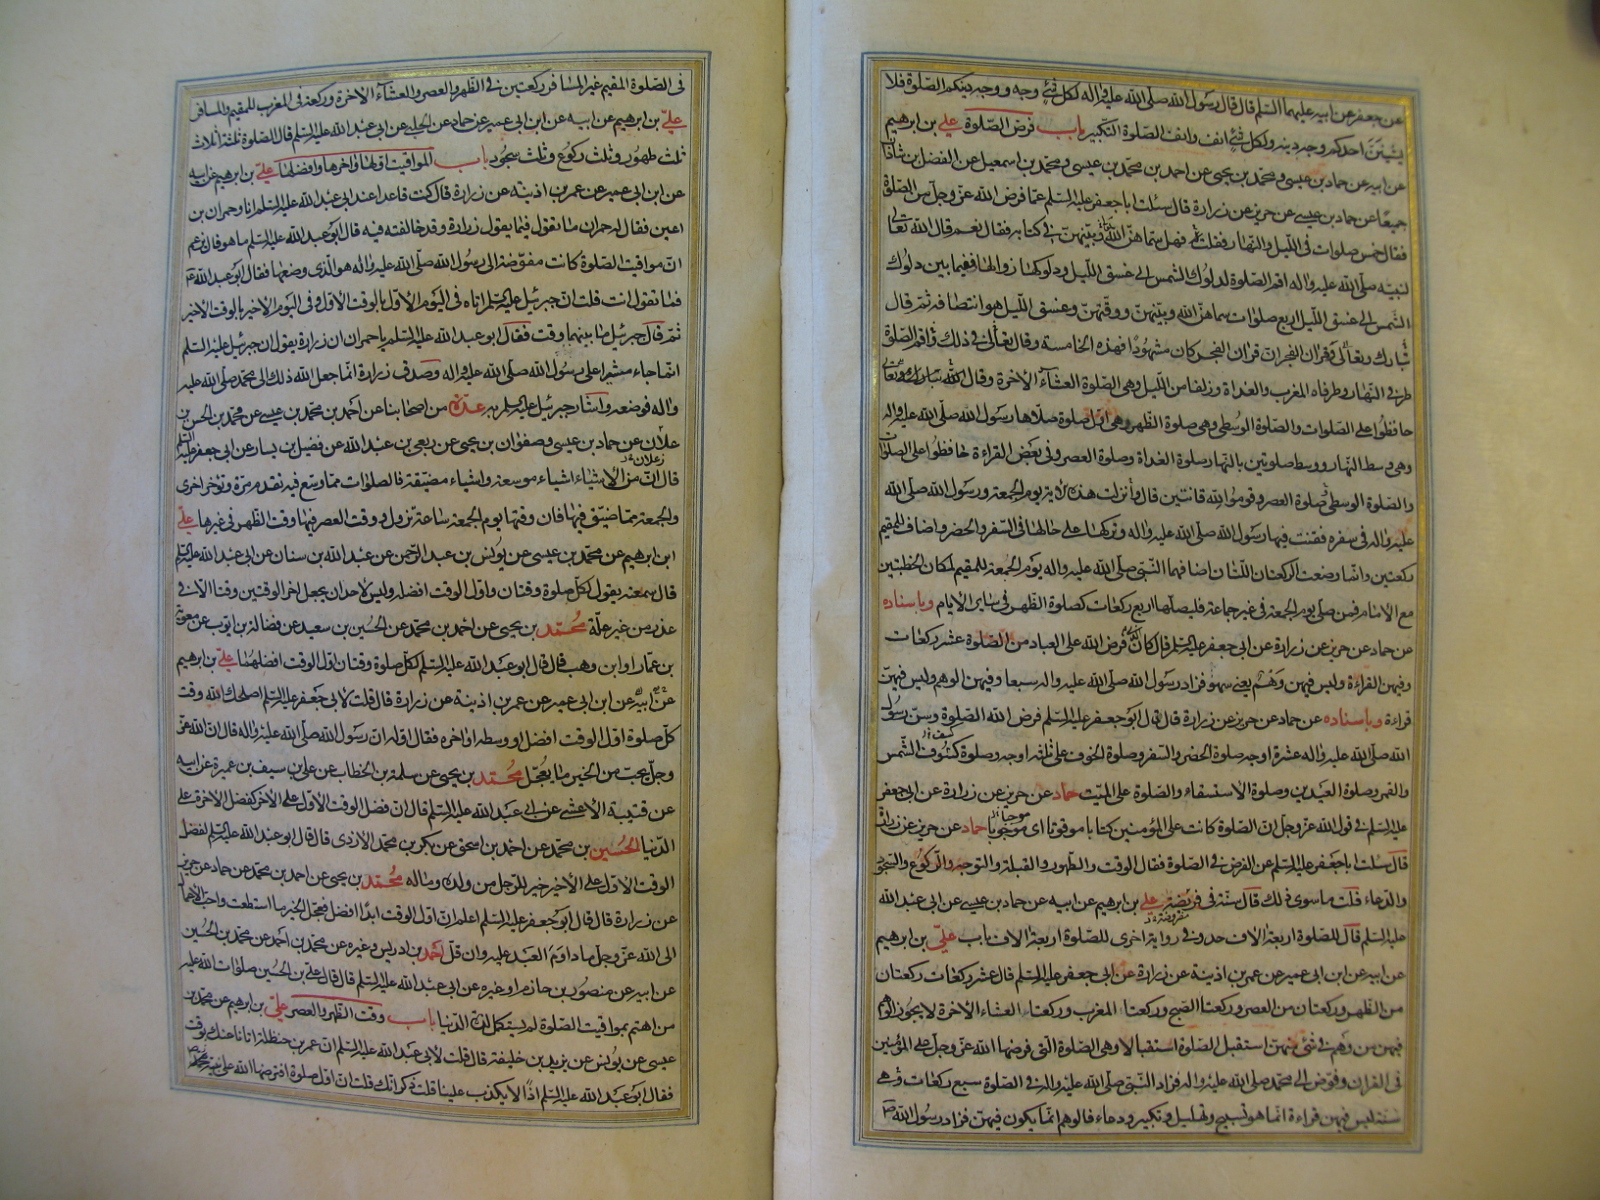 عن جعفر عن ابيه عليهما السلم قال قال رسول الله صلى الله عليه واله لكل شئ وجه ووجه دينكم الصلوة فلا
يشينن احدكم وجه دينه ولكل شئ انف وانف الصلوة التكبير باب فرض الصلوة على بن ابرهيم
عن ابيه عن حماد بن عيسى ومحمد بن يحيى عن احمد بن محمد بن عيسى ومحمد بن اسمعيل عن الفضل بن شاذان
جميعا عن حماد بن عيسى عن حريز عن زرارة قال سئلت ابا جعفر عليه السلم عما فرض الله عز وجل من الصلوة
فقال خمس صلوات فى الليل والنهار فقلت فهل سماهن الله وبينهن فى كتابه فقال نعم قال الله تعالى
لنبيه صلى الله عليه واله اقم الصلوة لدلوك الشمس الى غسق الليل ودلوكها زوالها ففيما بين دلوك
الشمس الى غسق الليل اربع صلوات سماهن الله وبينهن ووقتهن وغسق الليل هو انتصافه ثم قال
تبارك وتعالى وقران الفجر ان قران الفجر كان مشهودا فهذه الخامسة وقال تعالى فى ذلك واقم الصلوة
طرفى النهار وطرفاه المغرب والغداة وزلفا من الليل وهى الصلوة العشاء الاخرة وقال الله تبارك وتعالى
حافظوا على الصلوات والصلوة الوسطى وهى صلوة الظهر وهى اول صلوة صلاها رسول الله صلى الله عليه واله
وهى وسط النهار ووسط صلوتين بالنهار صلوة الغداة وصلوة العصر وفى بعض القراءة حافظوا على الصلوات
والصلوة الوسطى صلوة العصر وقوموا لله قانتين قال وانزلت هذه الاية يوم الجمعة ورسول الله صلى الله
عليه واله فى سفره فقنت فيها رسول الله صلى الله عليه واله وتركها على حالها فى السفر والحضر واضاف للمقيم
ركعتين وانما وضعت الركعتان اللتان اضافهما النبى صلى الله عليه واله يوم الجمعة للمقيم لمكان الخطبتين
مع الامام فمن صلى يوم الجمعة فى غير جماعة فليصلها اربع ركعات كصلوة الظهر فى ساير الايام وباسناده
عن حماد عن حريز عن زرارة عن ابى جعفر عليه السلم قال كان الذى فرض الله على العباد من الصلوة عشر ركعات
وفيهن القراءة وليس فيهن وهم يعنى سهو فزاد رسول الله صلى الله عليه واله سبعا وفيهن الوهم وليس فيهن
قراءة وباسناده عن حماد عن حريز عن زرارة قال قال ابو جعفر عليه السلم فرض الله الصلوة وسن رسول
الله صلى الله عليه واله عشرة اوجه صلوة الحضر والسفر وصلوة الخوف على ثلثة اوجه وصلوة كسوف الشمس
والقمر وصلوة العيدين وصلوة الاستسقاء والصلوة على الميت حماد عن حريز عن زرارة عن ابى جعفر
عليه السلم فى قول الله عز وجل ان الصلوة كانت على المؤمنين كتابا موقوتا اى موجوبا حماد عن حريز عن زرارة
قال سئلت ابا جعفر عليه السلم عن الفرض فى الصلوة فقال الوقت والطهور والقبلة والتوجه والركوع والسجود
والدعاء قلت ما سوى ذلك قال سنة فى فريضة على بن ابرهيم عن ابيه عن حماد بن عيسى عن ابى عبد الله
عليه السلم قال للصلوة اربعة الاف حد وفى رواية اخرى للصلوة اربعة الاف باب على بن ابرهيم
عن ابيه عن ابن ابى عمير عن عمر بن اذينة عن زرارة عن ابى جعفر عليه السلم قال عشر ركعات ركعتان
من الظهر وركعتان من العصر وركعتا الصبح وركعتا المغرب وركعتا العشاء الاخرة لا يجوز الوهم
فيهن من وهم فى شئ منهن استقبل الصلوة استقبالا وهى الصلوة التى فرضها الله عز وجل على المؤمنين
فى القران وفوض الى محمد صلى الله عليه واله فزاد النبى صلى الله عليه واله فى الصلوة سبع ركعات وهى
سنة ليس فيهن قراءة انما هو تسبيح وتهليل وتكبير ودعاء فالوهم انما يكون فيهن فزاد رسول الله ص
فى الصلوة المقيم غير المسافر ركعتين فى الظهر والعصر والعشاء الاخرة وركعة فى المغرب للمقيم والمسافر
على بن ابرهيم عن ابيه عن ابن ابى عمير عن حماد عن الحلبى عن ابى عبد الله عليه السلم قال الصلوة ثلثة اثلاث
ثلث طهور وثلث ركوع وثلث سجود باب المواقيت اولها واخرها وافضلها على بن ابرهيم عن ابيه
عن ابن ابى عمير عن عمر بن اذينة عن زرارة قال كنت قاعدا عند ابى عبد الله عليه السلم انا وحمران بن
اعين فقال له حمران ما تقول فيما يقول زرارة وقد خالفته فيه قال ابو عبد الله عليه السلم ما هو قال يزعم
ان مواقيت الصلوة كانت مفوضة الى رسول الله صلى الله عليه واله هو الذى وضعها فقال ابو عبد الله ع
فما تقول انت قلت ان جبرئيل عليه السلم اتاه فى اليوم الاول بالوقت الاول وفى اليوم الاخير بالوقت الاخير
ثم قال جبرئيل ما بينهما وقت فقال ابو عبد الله عليه السلم يا حمران ان زرارة يقول ان جبرئيل عليه السلم
انما جاء مشيرا على رسول الله صلى الله عليه واله وصدق زرارة انما جعل الله ذلك الى محمد صلى الله عليه
واله فوضعه واشار جبرئيل عليه السلم به عدة من اصحابنا عن احمد بن محمد بن عيسى عن محمد بن الحسن بن
علان عن حماد بن عيسى وصفوان بن يحيى عن ربعى بن عبد الله عن فضيل بن يسار عن ابى جعفر عليه السلم
قال ان من الاشياء اشياء موسعة واشياء مضيقة فالصلوات مما وسع فيه تقدم مرة وتؤخر اخرى
والجمعة مما ضيق فيها فان وقتها يوم الجمعة ساعة تزول ووقت العصر فيها وقت الظهر فى غيرها على
ابن ابرهيم عن محمد بن عيسى عن يونس بن عبد الرحمن عن عبد الله بن سنان عن ابى عبد الله عليه السلم
قال سمعته يقول لكل صلوة وقتان واول الوقت افضله وليس لاحد ان يجعل اخر الوقتين وقتا الا فى
عذر من غير علة محمد بن يحيى عن احمد بن محمد عن الحسين بن سعيد عن فضالة بن ايوب عن معوية
بن عمار او ابن وهب قال قال ابو عبد الله عليه السلم لكل صلوة وقتان اول الوقت افضلهما على بن ابرهيم
عن ابيه عن ابن ابى عمير عن عمر بن اذينة عن زرارة قال قلت لابى جعفر عليه السلم اصلحك الله وقت
كل صلوة اول الوقت افضل او وسطه او اخره فقال اوله ان رسول الله صلى الله عليه واله قال ان الله عز
وجل يحب من الخير ما يعجل محمد بن يحيى عن سلمة بن الخطاب عن على بن سيف بن عميرة عن ابيه
عن قتيبة الاعشى عن ابى عبد الله عليه السلم قال ان فضل الوقت الاول على الاخر كفضل الاخرة على
الدنيا الحسين بن محمد عن احمد بن اسحق عن بكر بن محمد الازدى قال قال ابو عبد الله عليه السلم لفضل
الوقت الاول على الاخير خير للرجل من ولده وماله محمد بن يحيى عن احمد بن محمد عن حماد عن حريز
عن زرارة قال قال ابو جعفر عليه السلم اعلم ان اول الوقت ابدا افضل فعجل الخير ما استطعت واحب الاعمال
الى الله عز وجل ما داوم العبد عليه وان قل احمد بن ادريس وغيره عن محمد بن احمد عن محمد بن الحسين
عن ابيه عن منصور بن حازم او غيره عن ابى عبد الله عليه السلم قال قال على بن الحسين صلوات الله عليه
من اهتم بمواقيت الصلوة لم يستكمل لذة الدنيا باب وقت الظهر والعصر على بن ابرهيم عن محمد بن
عيسى عن يونس عن يزيد بن خليفة قال قلت لابى عبد الله عليه السلم ان عمر بن حنظلة اتانا عنك بوقت
فقال ابو عبد الله عليه السلم اذا لا يكذب علينا قلت ذكر انك قلت ان اول صلوة افترضها الله على نبيه محمد ص